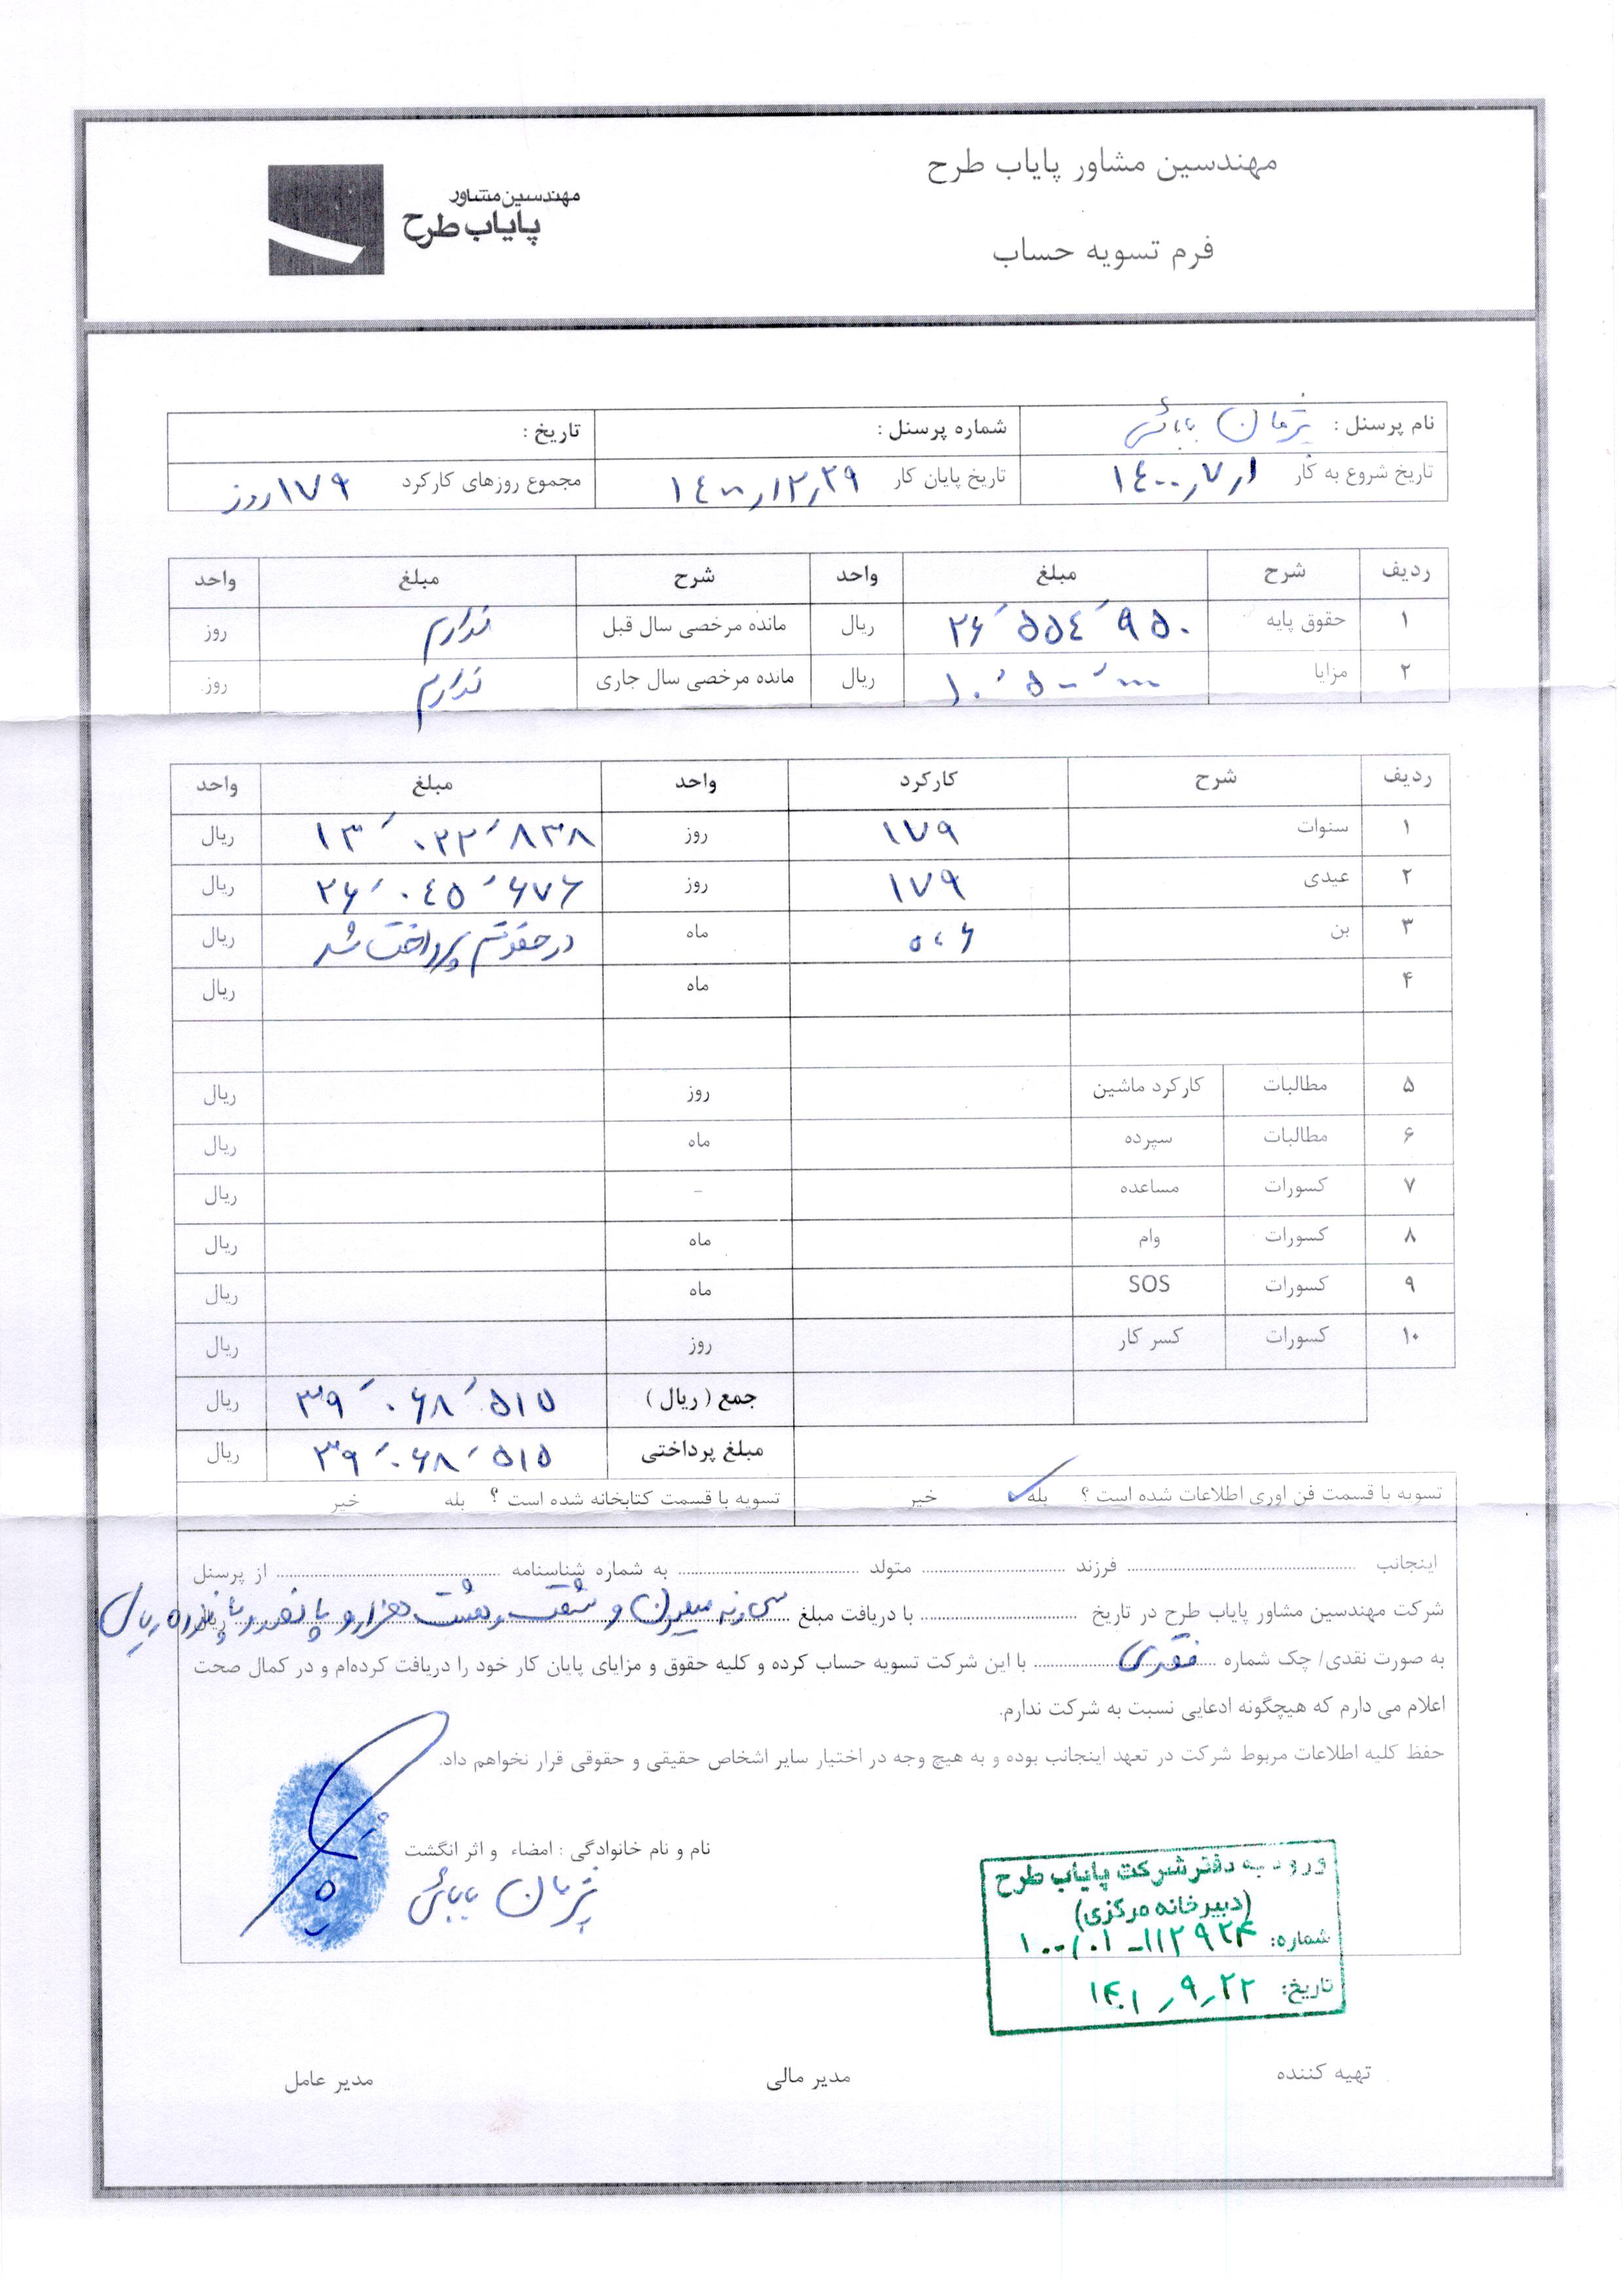 مهندسین مشاور پایاب طرح
مهندسین مشاور
پایاب طرح
فرم تسویه حساب
نام پرسنل : پژمان بابائی شماره پرسنل : تاریخ :
تاریخ شروع به کار ۱۴۰۰٫۷٫۱ تاریخ پایان کار ۱۴۰۰٫۱۲٫۲۹ مجموع روزهای کارکرد ۱۷۹ روز
ردیف شرح مبلغ واحد شرح مبلغ واحد
۱ حقوق پایه ۲۶٬۵۵۴٬۹۵۰ ریال مانده مرخصی سال قبل ندارم روز
۲ مزایا ۱۰٬۵۰۰٬۰۰۰ ریال مانده مرخصی سال جاری ندارم روز
ردیف شرح کارکرد واحد مبلغ واحد
۱ سنوات ۱۷۹ روز ۱۳٬۰۲۲٬۸۳۸ ریال
۲ عیدی ۱۷۹ روز ۲۶٬۰۴۵٬۶۷۶ ریال
۳ بن ماه در حقوقم پرداخت شد ریال
۴ ماه ریال
۵ مطالبات کارکرد ماشین روز ریال
۶ مطالبات سپرده ماه ریال
۷ کسورات مساعده - ریال
۸ کسورات وام ماه ریال
۹ کسورات SOS ماه ریال
۱۰ کسورات کسر کار روز ریال
جمع ( ریال ) ۳۹٬۰۶۸٬۵۱۵ ریال
مبلغ پرداختی ۳۹٬۰۶۸٬۵۱۵ ریال
تسویه با قسمت فن اوری اطلاعات شده است ؟ بله ✓ خیر تسویه با قسمت کتابخانه شده است ؟ بله خیر
اینجانب .................... فرزند .................... متولد .................... به شماره شناسنامه .................... از پرسنل
شرکت مهندسین مشاور پایاب طرح در تاریخ .................... با دریافت مبلغ سی و نه میلیون و شصت و هشت هزار و پانصد و پانزده ریال
به صورت نقدی/ چک شماره نقدی با این شرکت تسویه حساب کرده و کلیه حقوق و مزایای پایان کار خود را دریافت کرده‌ام و در کمال صحت
اعلام می دارم که هیچگونه ادعایی نسبت به شرکت ندارم.
حفظ کلیه اطلاعات مربوط شرکت در تعهد اینجانب بوده و به هیچ وجه در اختیار سایر اشخاص حقیقی و حقوقی قرار نخواهم داد.
نام و نام خانوادگی : امضاء و اثر انگشت
پژمان بابائی
ورود به دفتر شرکت پایاب طرح
(دبیرخانه مرکزی)
شماره: ۱۰۰/۰۱-۱۱۲۹۲۴
تاریخ: ۱۴۰۱٫۹٫۲۲
تهیه کننده مدیر مالی مدیر عامل